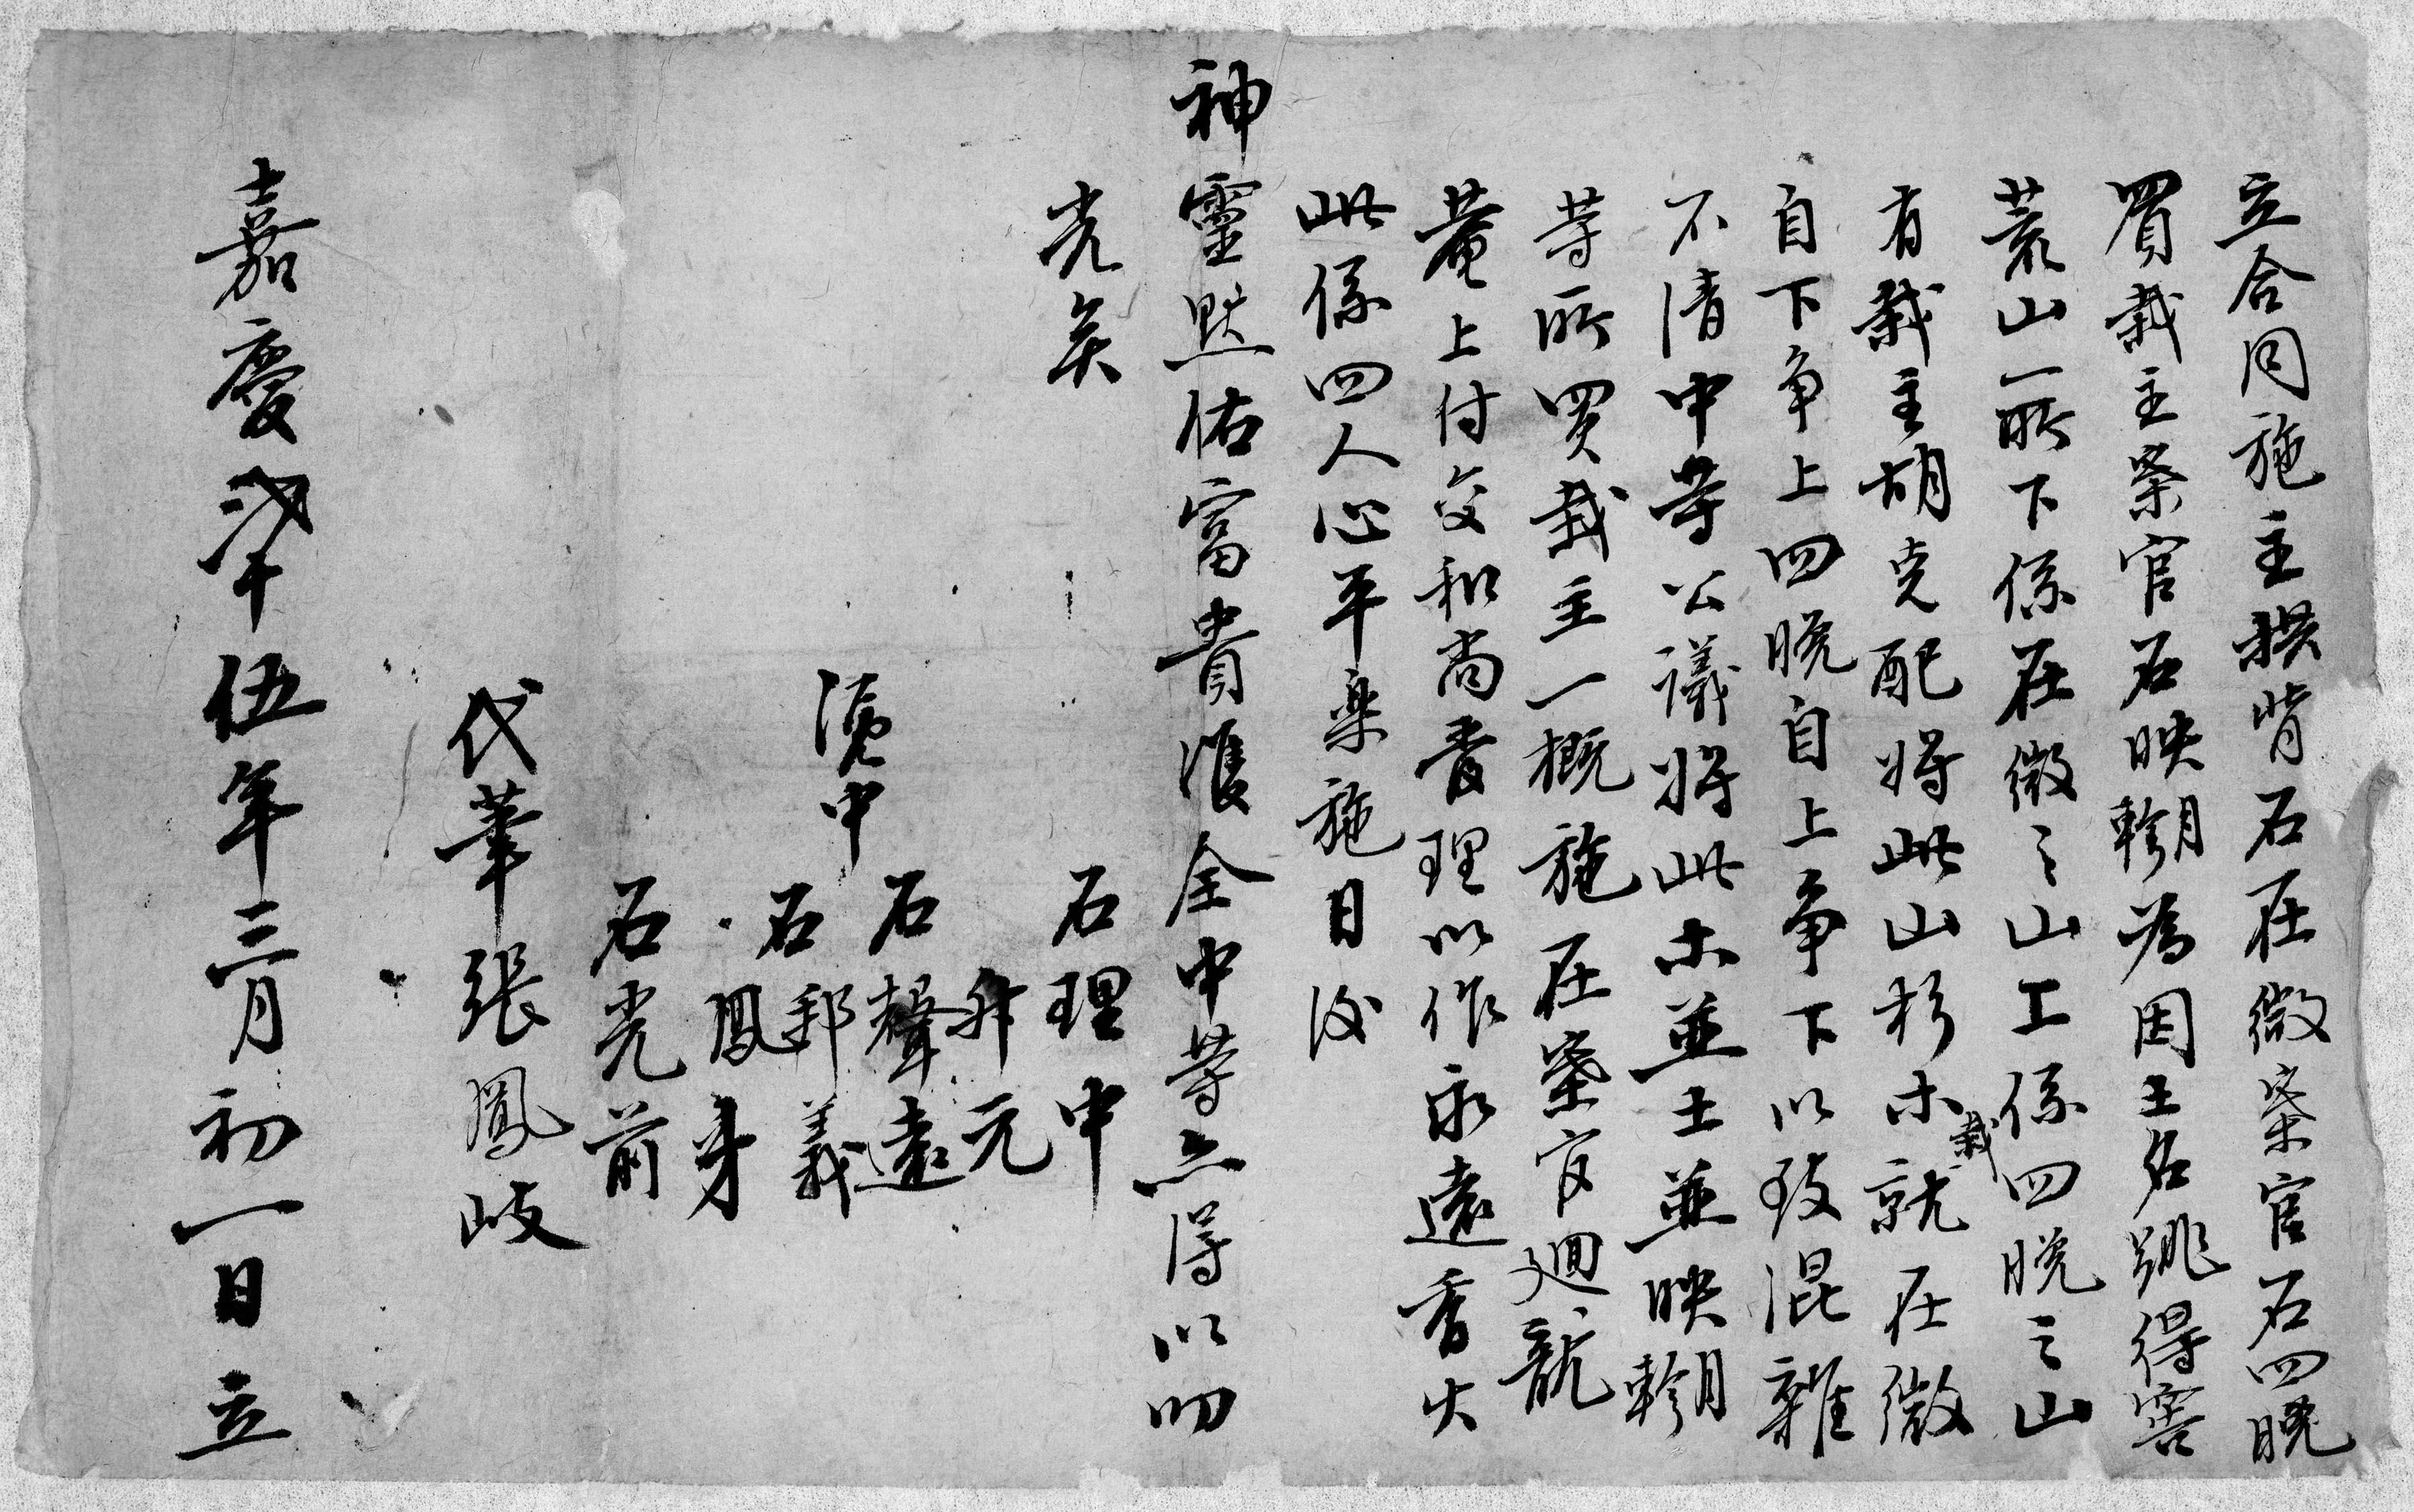 立合同施主拱背石在徵寨官石四晚
買栽主寨官石映翰為因土名跳得窖
荒山一所下係在徵之山工係四晚之山
有栽主胡克配将此山杉木就栽在徵
自下争上四晚自上争下以致混雜
不清中等公議将此木並土並映翰
等所買栽主一概施在寨官廻龍
菴上付交和尚耆理以作永遠香火
此係四人心平樂施日後
神靈默佑富貴雙全中等亦得以叨
光矣
石理中
升元
石聲遠
憑中
石邦義
鳳身
石光前
代筆張鳳岐
嘉慶貳拾伍年三月初一日立